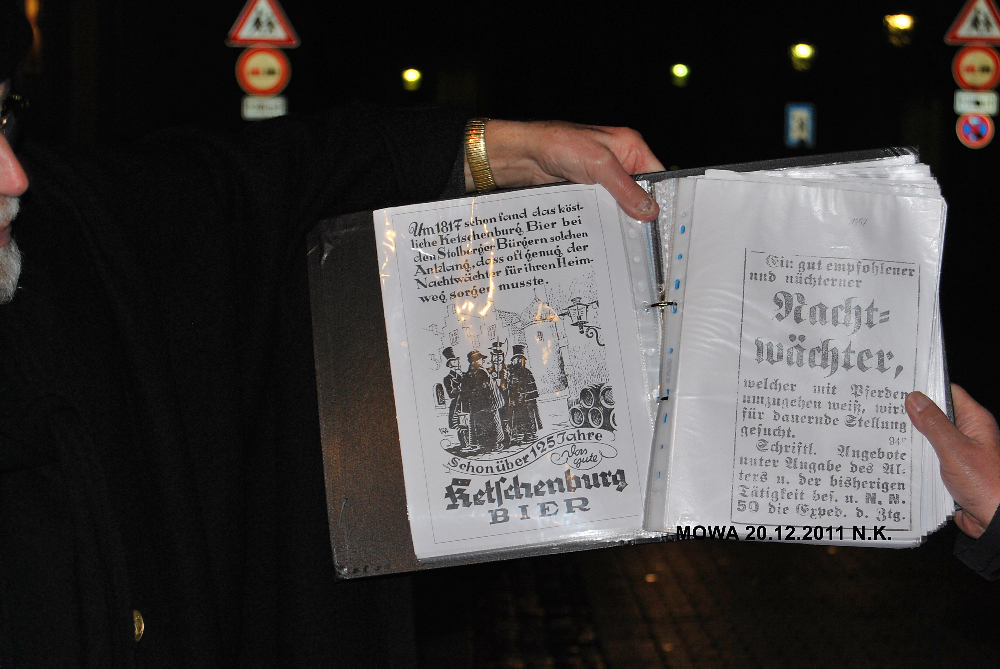 Um 1817 schon fand das köst-
liche Ketschenburg Bier bei
den Stolberger Bürgern solchen
Anklang, dass oft genug der
Nachtwächter für ihren Heim-
weg sorgen musste.
schon über 125 Jahre
das gute
Ketschenburg
BIER
Ein gut empfohlener
und nüchterner
Nacht=
wächter,
welcher mit Pferden
umzugehen weiß, wird
für dauernde Stellung
gesucht.
94°
Schriftl. Angebote
unter Angabe des Al-
ters u. der bisherigen
Tätigkeit bef. u. N. N.
50 die Exped. d. Ztg.
MOWA 20.12.2011 N.K.